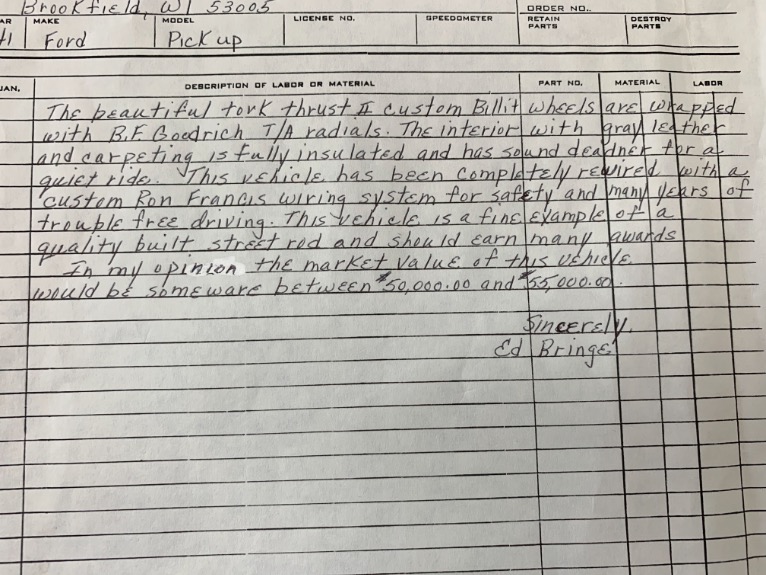 Brookfield, WI 53005
ORDER NO..
AR MAKE MODEL LICENSE NO. SPEEDOMETER RETAIN PARTS DESTROY PARTS
41 Ford Pickup
UAN. DESCRIPTION OF LABOR OR MATERIAL PART NO. MATERIAL LABOR
The beautiful tork thrust II custom Billit wheels are wrapped
with B.F. Goodrich T/A radials. The interior with gray leather
and carpeting is fully insulated and has sound deadner for a
quiet ride. This vehicle has been completely rewired with a
custom Ron Francis wiring system for safety and many years of
trouble free driving. This vehicle is a fine example of a
quality built street rod and should earn many awards
In my opinion the market value of this vehicle
would be someware between $50,000.00 and $55,000.00.
Sincerely,
Ed Bringe